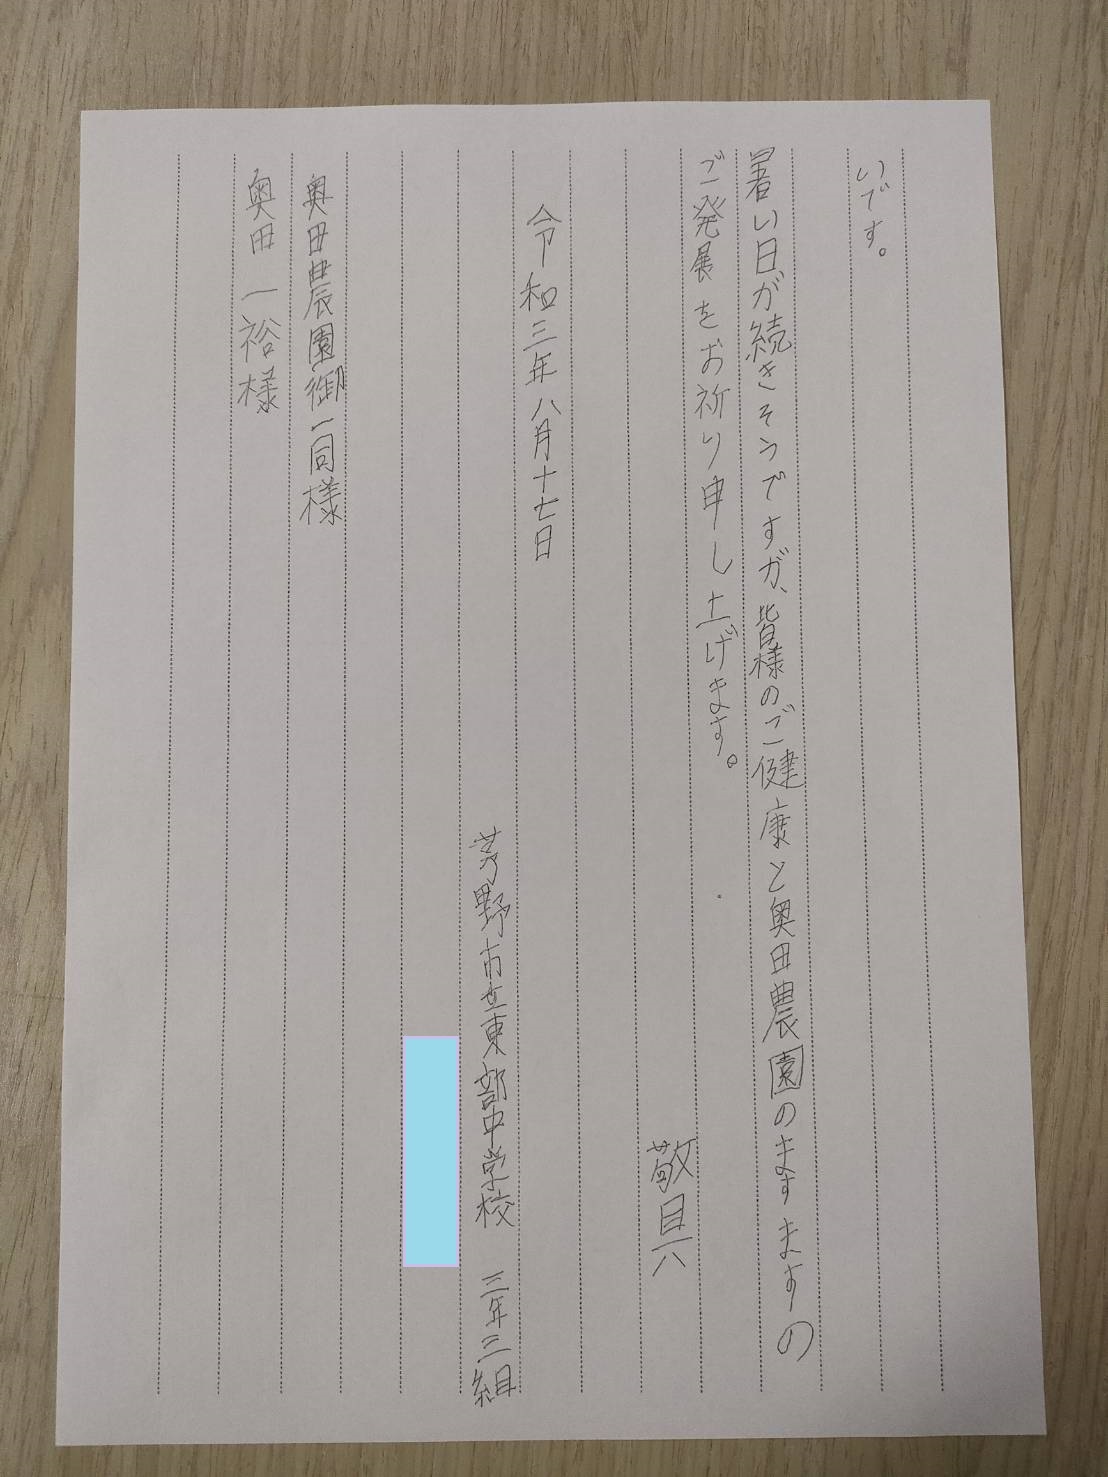 いです。
暑い日が続きそうですが、皆様のご健康と奥田農園のますますの
ご発展をお祈り申し上げます。
敬具
令和三年八月十七日
茅野市立東部中学校 三年三組
奥田農園御一同様
奥田一裕様